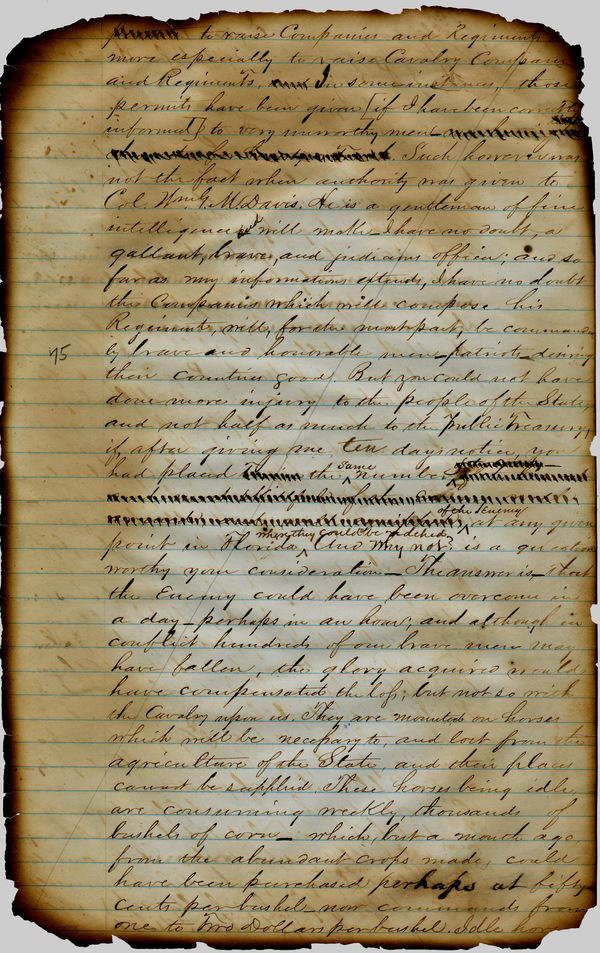 to raise Companies and Regiments
more especially to raise Cavalry Companies
and Regiments. In some instances, those
permits have been given [if I have been correctly
informed] to very unworthy men
Such however was
not the fact when authority was given to
Col. Wm. G. M. Davis. He is a gentleman of fine
intelligence, and will make I have no doubt, a
gallant, brave, and judicious officer; and so
far as my information extends, I have no doubt
the Companies which will compose his
Regiment, will, for the most part, be commanded
75 by brave and honorable men—patriots—desiring
their countries good. But you could not have
done more injury to the people of the State,
and not half as much to the Public Treasury,
if, after giving me ten days notice, you
had placed the same number
of the Enemy at any given
point in Florida, where they could be reached. And why not? is a question
worthy your consideration— The answer is—that
the Enemy could have been overcome in
a day—perhaps in an hour; and although in
conflict hundreds of our brave men may
have fallen, the glory acquired would
have compensated the loss; but not so with
the Cavalry upon us. They are mounted on horses
which will be necessary to, and lost from the
agriculture of the State, and their places
cannot be supplied. These horses being idle,
are consuming weekly, thousands of
bushels of corn— which, but a month ago,
from the abundant crops made, could
have been purchased perhaps at fifty
cents per bushel— now commands from
one to Two Dollars per bushel. Idle